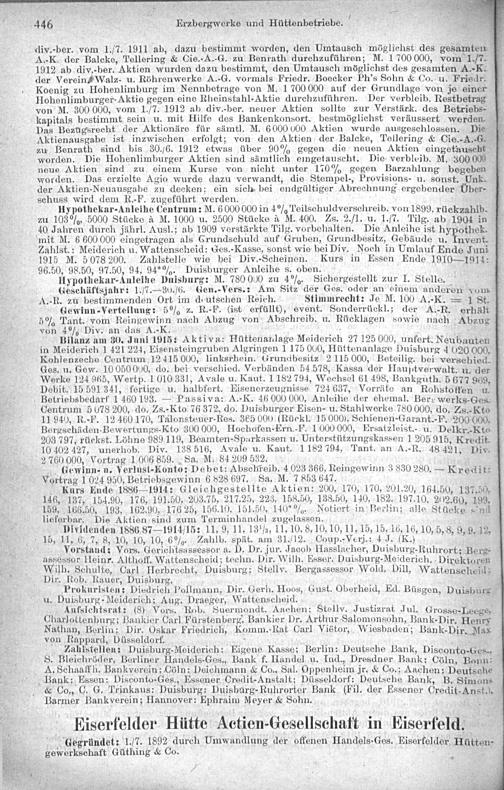 446 Erzbergwerke und Hüttenbetriebe.
div.-ber. vom 1./7. 1911 ab, dazu bestimmt worden, den Umtausch möglichst des gesamten
A.-K. der Balcke, Tellering & Cie.-A.-G. zu Benrath durchzuführen; M. 1 700 000, vom 1./7.
1912 ab div.-ber. Aktien wurden dazu bestimmt, den Umtausch möglichst des gesamten A.-K.
der Verein. Walz- u. Röhrenwerke A.-G. vormals Friedr. Boecker Ph's Sohn & Co. u. Friedr.
Koenig zu Hohenlimburg im Nennbetrage von M. 1 700 000 auf der Grundlage von je einer
Hohenlimburger-Aktie gegen eine Rheinstahl-Aktie durchzuführen. Der verbleib. Restbetrag
von M. 300 000, vom 1./7. 1912 ab div.-ber. neuer Aktien sollte zur Verstärk. des Betriebs-
kapitals bestimmt sein u. mit Hilfe des Bankenkonsort. bestmöglichst veräussert werden.
Das Bezugsrecht der Aktionäre für sämtl. M. 6 000 000 Aktien wurde ausgeschlossen. Die
Aktienausgabe ist inzwischen erfolgt; von den Aktien der Balcke, Tellering & Cie.-A.-G.
zu Benrath sind bis 30./6. 1912 etwas über 90% gegen die neuen Aktien eingetauscht
worden. Die Hohenlimburger Aktien sind sämtlich eingetauscht. Die verbleib. M. 300 000
neue Aktien sind zu einem Kurse von nicht unter 170% gegen Barzahlung begeben
worden. Das erzielte Agio wurde dazu verwandt, die Stempel-, Provisions- u. sonst. Unk.
der Aktien-Neuausgabe zu decken; ein sich bei endgültiger Abrechnung ergebender Über-
schuss wird dem R.-F. zugeführt werden.
Hypothekar-Anleihe Centrum: M. 6 000 000 in 4% Teilschuldverschreib. von 1899, rückzahlb.
zu 103%, 5000 Stücke à M. 1000 u. 2500 Stücke à M. 400. Zs. 2./1. u. 1./7. Tilg. ab 1904 in
40 Jahren durch jährl. Ausl.; ab 1909 verstärkte Tilg. vorbehalten. Die Anleihe ist hypothek.
mit M. 6 600 000 eingetragen als Grundschuld auf Gruben, Grundbesitz, Gebäude u. Invent.
Zahlst.: Meiderich u. Wattenscheid: Ges.-Kasse, sonst wie bei Div. Noch in Umlauf Ende Juni
1915 M. 5 078 200. Zahlstelle wie bei Div.-Scheinen. Kurs in Essen Ende 1910—1914:
96.50, 98.50, 97.50, 94, 94*%. Duisburger Anleihe s. oben.
Hypothekar-Anleihe Duisburg: M. 780 000 zu 4%. Sichergestellt zur I. Stelle.
Geschäftsjahr: 1./7.—30./6. Gen.-Vers.: Am Sitz der Ges. oder an einem anderen vom
A.-R. zu bestimmenden Ort im deutschen Reich. Stimmrecht: Je M. 100 A.-K. = 1 St.
Gewinn-Verteilung: 5% z. R.-F. (ist erfüllt), event. Sonderrückl.; der A.-R. erhält
5% Tant. vom Reingewinn nach Abzug von Abschreib. u. Rücklagen sowie nach Abzug
von 4% Div. an das A.-K.
Bilanz am 30. Juni 1915: Aktiva: Hüttenanlage Meiderich 27 125 000, unfert. Neubauten
in Meiderich 1 421 224, Eisensteingruben Algringen 1 175 000, Hüttenanlage Duisburg 4 020 000,
Kohlenzeche Centrum 12 415 000, linksrhein. Grundbesitz 2 115 000, Beteilig. bei verschied.
Ges. u. Gew. 10 050 000, do. bei verschied. Verbänden 54 578, Kassa der Hauptverwalt. u. der
Werke 124 965, Wertp. 1 010 331, Avale u. Kaut. 1 182 794, Wechsel 61 498, Bankguth. 5 677 805,
Debit. 15 591 341, fertige u. halbfert. Eisenerzeugnisse 724 637, Vorräte an Rohstoffen u.
Betriebsbedarf 1 460 193. — Passiva: A.-K. 46 000 000, Anleihe der ehemal. Bergwerks-Ges.
Centrum 5 078 200, do. Zs.-Kto 76 372, do. Duisburger Eisen- u. Stahlwerke 780 000, do. Zs.-Kto
11 940, R.-F. 12 460 170, Talonsteuer-Res. 365 000 (Rückl. 15 000), Schienen-Garant.-F. 200 000,
Bergschäden-Bewertungs-Kto 300 000, Hochofen-Ern.-F. 1 000 000, Ersatzleist.- u. Delkr.-Kto
203 797, rückst. Löhne 989 119, Beamten-Sparkassen u. Unterstützungskassen 1 205 915, Kredit.
10 402 427, unerhob. Div. 138 516, Avale u. Kaut. 1 182 794, Tant. an A.-R. 48 421, Div.
2 760 000, Vortrag 1 006 859. Sa. M. 84 209 532.
Gewinn- u. Verlust-Konto: Debet: Abschreib. 4 023 366, Reingewinn 3 830 280. — Kredit:
Vortrag 1 024 950, Betriebsgewinn 6 828 697. Sa. M. 7 853 647.
Kurs Ende 1886—1914: Gleichgestellte Aktien: 200, 170, 170, 201.20, 164.50, 137.50,
146, 137, 154.90, 176, 191.50, 203.75, 217.25, 223, 158.50, 138.50, 140, 182, 197.10, 202.60, 199,
159, 166.50, 193, 162.90, 176.25, 156.10, 151.50, 140*%. Notiert in Berlin; alle Stücke sind
lieferbar. Die Aktien sind zum Terminhandel zugelassen.
Dividenden 1886/87—1914/15: 11, 9, 11, 13⅓, 11, 10, 8, 10, 10, 11, 15, 15, 16, 16, 10, 5, 8, 9, 9, 12,
15, 11, 6, 7, 8, 10, 10, 10, 6%. Zahlb. spät. am 31./12. Coup.-Verj.: 4 J. (K.)
Vorstand: Vors. Gerichtsassessor a. D. Dr. jur. Jacob Hasslacher, Duisburg-Ruhrort; Berg-
assessor Heinr. Althoff, Wattenscheid; techn. Dir. Wilh. Esser, Duisburg-Meiderich. Direktoren
Wilh. Schulte, Carl Herbrecht, Duisburg; Stellv. Bergassessor Wold. Dill, Wattenscheid;
Dir. Rob. Rauer, Duisburg.
Prokuristen: Diedrich Pollmann, Dir. Gerh. Hoos, Gust. Oberheid, Ed. Büsgen, Duisburg
u. Duisburg-Meiderich; Aug. Draeger, Wattenscheid.
Aufsichtsrat: (8) Vors. Rob. Suermondt, Aachen; Stellv. Justizrat Jul. Grosse-Leege,
Charlottenburg; Bankier Carl Fürstenberg, Bankier Dr. Arthur Salomonsohn, Bank-Dir. Henry
Nathan, Berlin; Dir. Oskar Friedrich, Komm.-Rat Carl Viëtor, Wiesbaden; Bank-Dir. Max
von Rappard, Düsseldorf.
Zahlstellen: Duisburg-Meiderich: Eigene Kasse; Berlin: Deutsche Bank, Disconto-Ges.,
S. Bleichröder, Berliner Handels-Ges., Bank f. Handel u. Ind., Dresdner Bank; Cöln, Bonn:
A. Schaaffh. Bankverein; Cöln: Deichmann & Co., Sal. Oppenheim jr. & Co.; Aachen: Deutsche
Bank; Essen: Disconto-Ges., Essener Credit-Anstalt; Düsseldorf: Deutsche Bank, B. Simons
& Co., C. G. Trinkaus; Duisburg: Duisburg-Ruhrorter Bank (Fil. der Essener Credit-Anst.),
Barmer Bankverein; Hannover: Ephraim Meyer & Sohn.
Eiserfelder Hütte Actien-Gesellschaft in Eiserfeld.
Gegründet: 1./7. 1892 durch Umwandlung der offenen Handels-Ges. Eiserfelder Hütten-
gewerkschaft Güthing & Co.